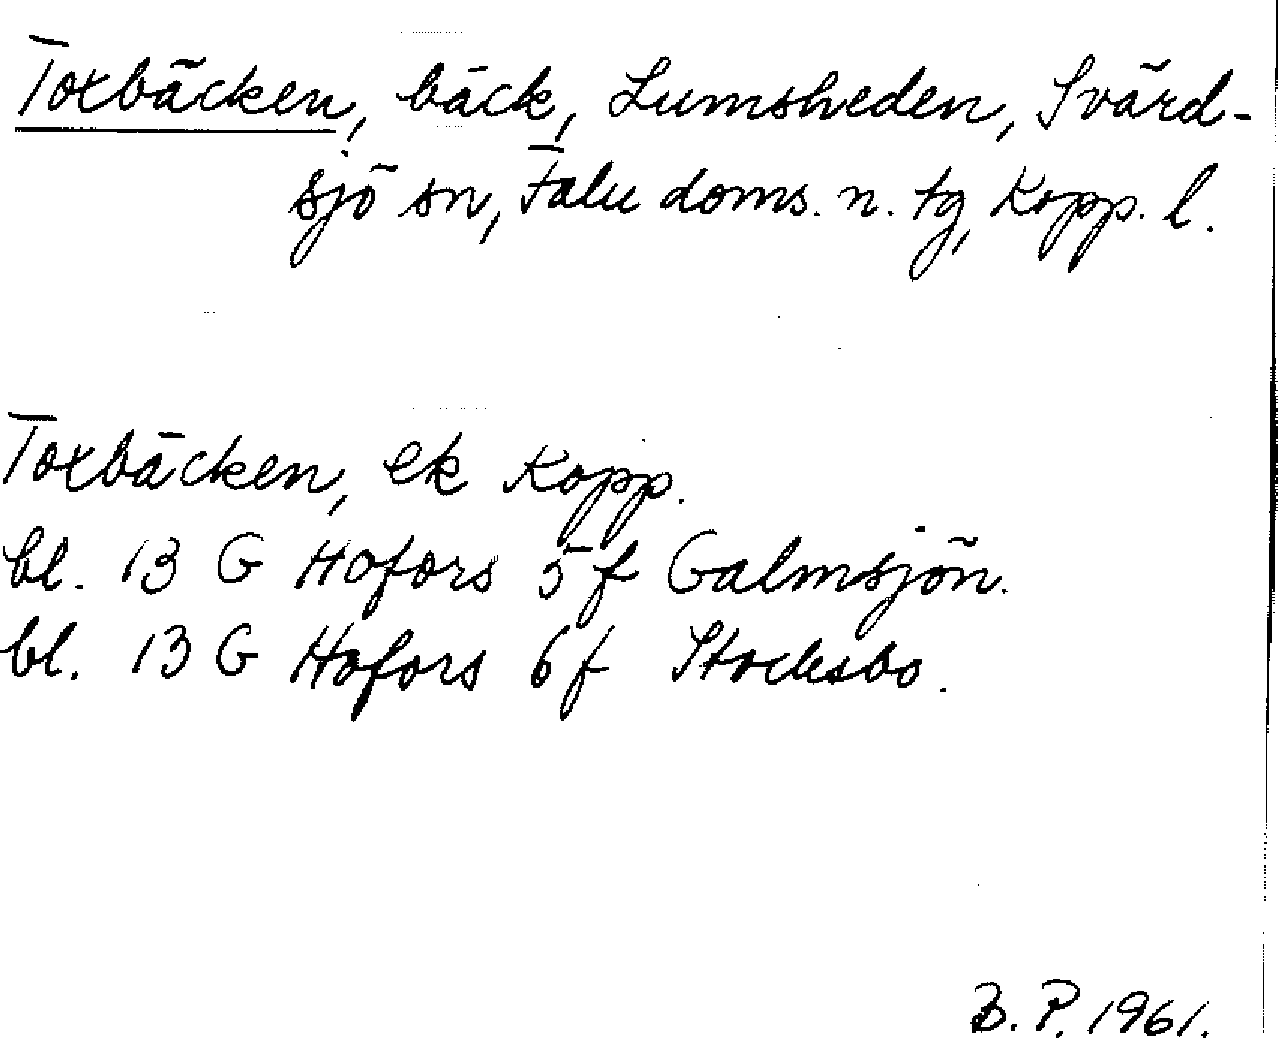 Toxbäcken, bäck, Lumsheden, Svärd-
sjö sn, Falu doms. n. tg, Kopp. l.
Toxbäcken, ek Kopp.
bl. 13 G Hofors 5 f Galmsjön.
bl. 13 G Hofors 6 f Stocksbo.
B. P. 1961.